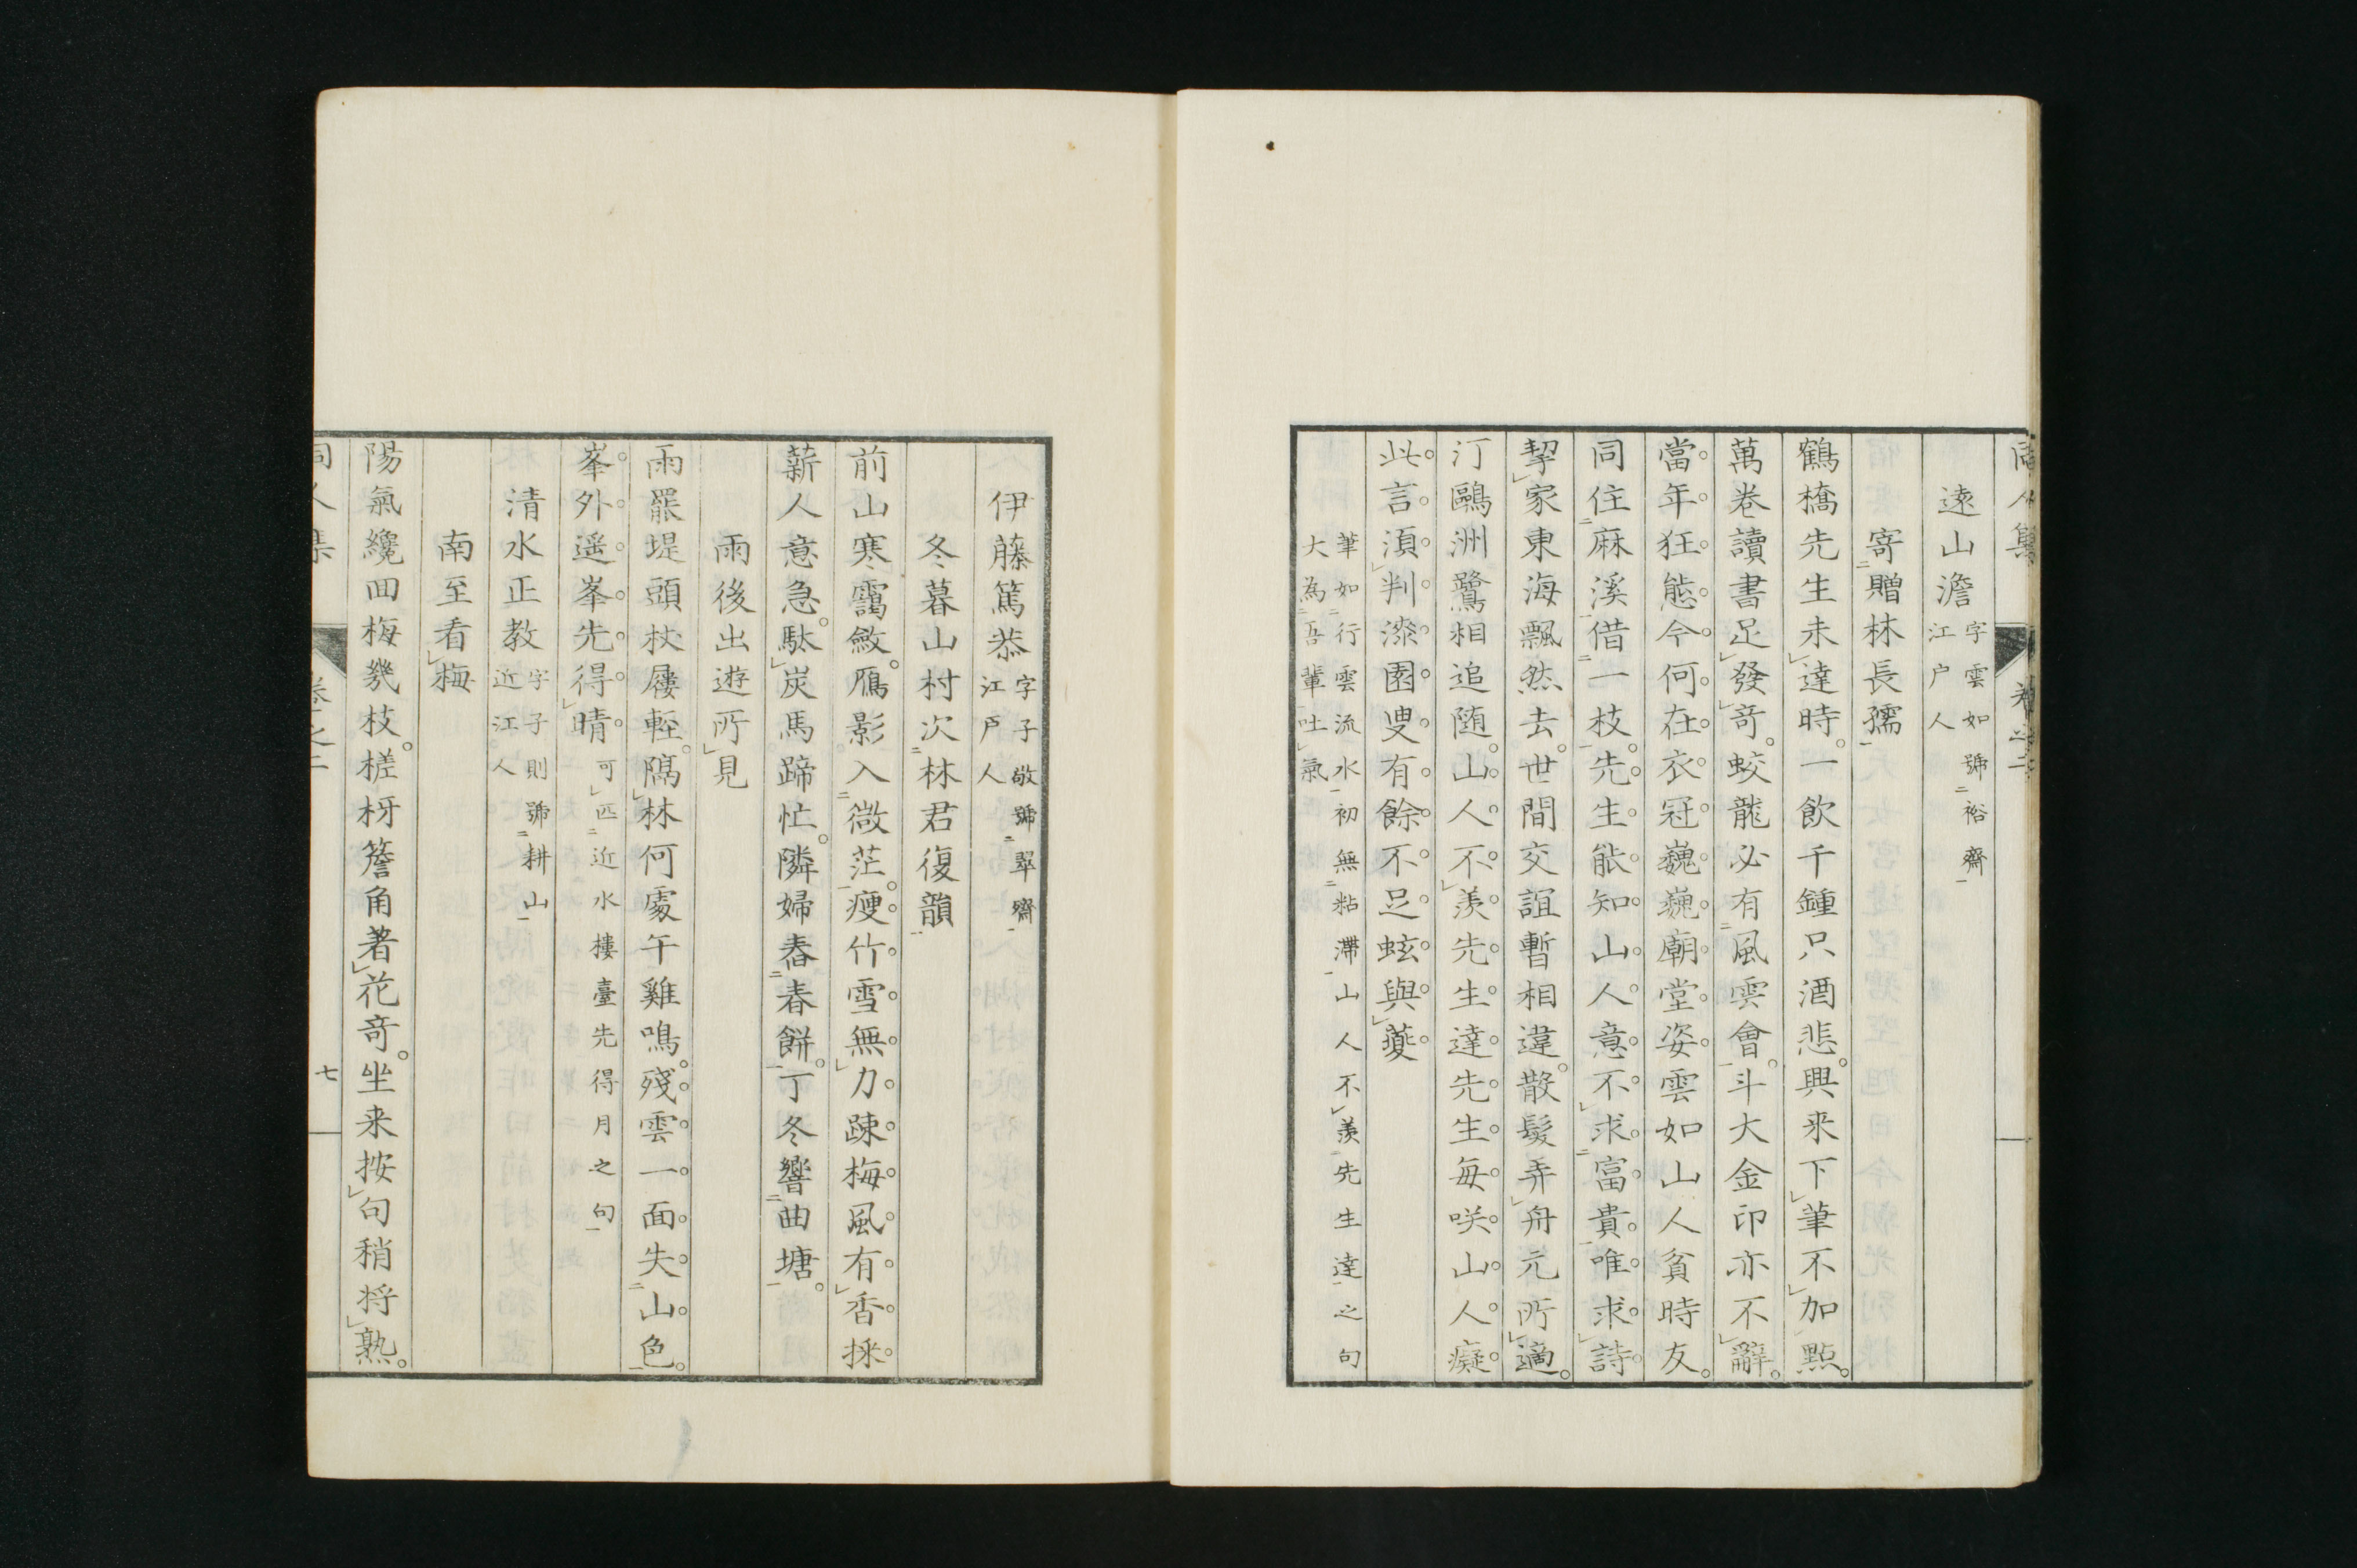 同人集 卷之二
遠山澹 字雲如號裕齋
江户人
寄贈林長孺
鶴橋先生未達時。一飲千鍾只酒悲。興来下筆不加點。
萬卷讀書足發竒。蛟龍必有風雲會。斗大金印亦不辭。
當年狂態今何在衣冠巍巍廟堂姿雲如山人貧時友。
同住麻溪借一枝。先生能知山人意不求富貴唯求詩
挈家東海飄然去。世間交誼暫相違。散髮弄舟元所適。
汀鷗洲鷺相追随。山人不羨先生達先生每咲山人癡
此言湏判漆園叟有餘不足蚿與蘷
筆如行雲流水初無粘滯山人不羨先生達之句
大為吾輩吐氣
伊藤篤恭 字子敬號翠齋
江戸人
冬暮山村次林君復韻
前山寒靄斂。鴈影入微茫。瘦竹雪無力疎梅風有香採
薪人意急。駄炭馬蹄忙。隣婦舂春餅。丁冬響曲塘。
雨後出遊所見
雨罷堤頭杖屨輕。隔林何處午雞鳴。殘雲一面失山色。
峯外遥峯先得晴 可匹近水樓臺先得月之句
清水正教 字子則號耕山
近江人
南至看梅
陽氣纔回梅幾枝。槎枒簷角著花竒。坐来按句稍将熟。
同人集 卷之二 七